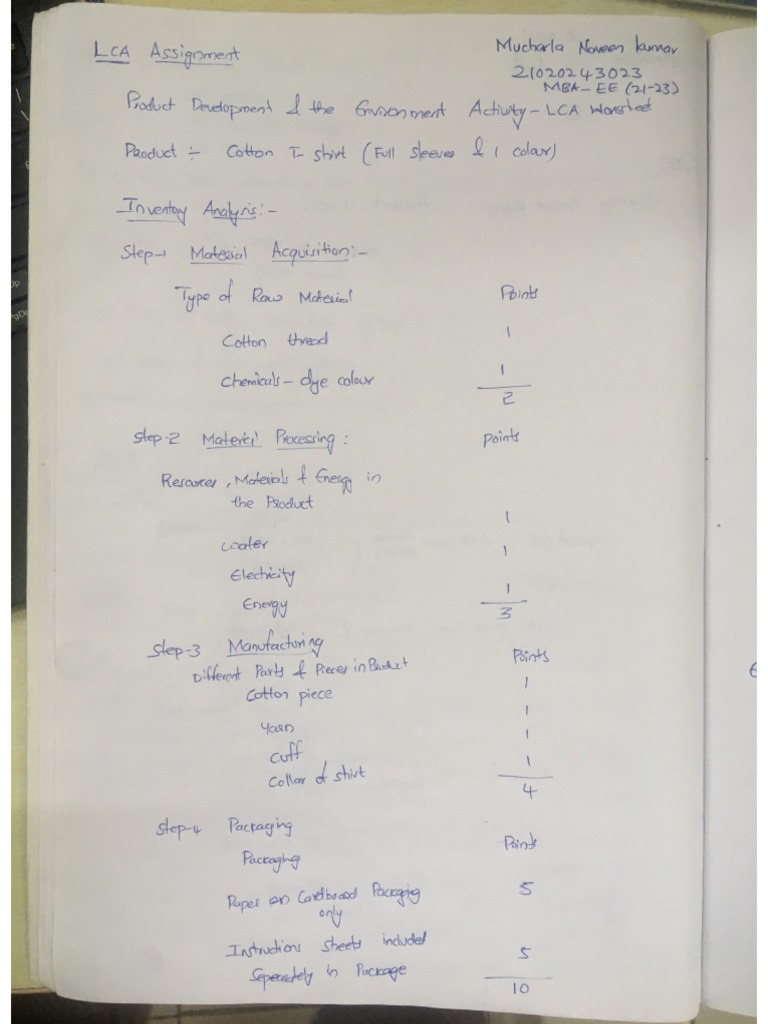 LCA Assignment
Mucharla Naveen kumar
21020243023
MBA-EE (21-23)
Product Development & the Environment Activity - LCA Worksheet
Product :- Cotton T-shirt (Full sleeves & 1 colour)
Inventory Analysis:-
Step-1 Material Acquisition:-
Type of Raw Material Points
Cotton thread 1
Chemicals - dye colour 1
2
Step-2 Material Processing: Points
Resources, Materials & Energy in
the Product
Water 1
Electricity 1
Energy 1
3
Step-3 Manufacturing
Different Parts & Pieces in Product Points
Cotton piece 1
Yarn 1
Cuff 1
Collar of shirt 1
4
Step-4 Packaging
Packaging Points
Paper or Cardboard Packaging 5
only
Instructions sheets included
Seperately in Package 5
10